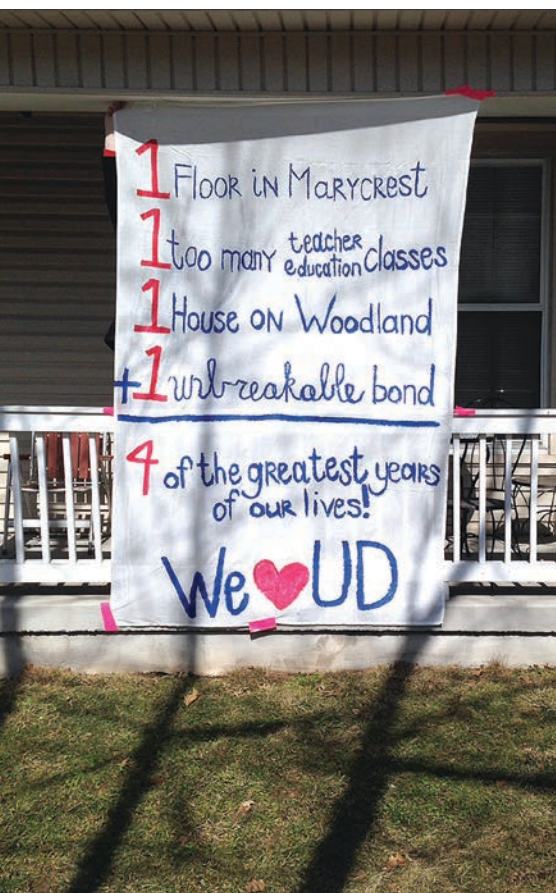 1 Floor in Marycrest
1 too many teacher education classes
1 House on Woodland
+1 unbreakable bond
4 of the greatest years
of our lives!
We ❤ UD